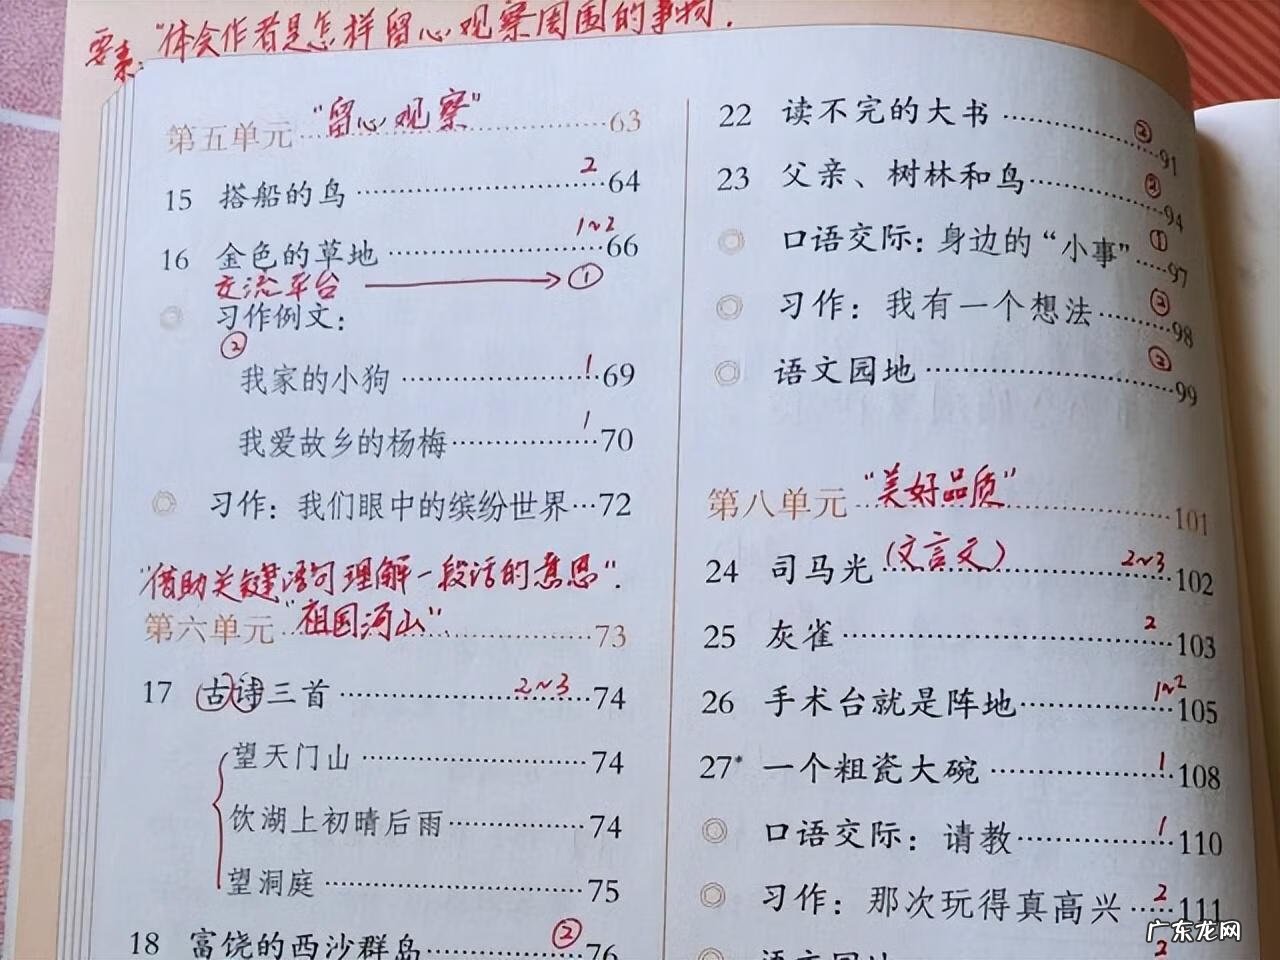 要素："体会作者是怎样留心观察周围的事物.
第五单元 "留心观察" 63
15 搭船的鸟 2 64
16 金色的草地 1~2 66
交流平台 ①
习作例文：
②
我家的小狗 1 69
我爱故乡的杨梅 1 70
习作：我们眼中的缤纷世界 72
"借助关键语句理解一段话的意思".
第六单元 "祖国河山". 73
17 古诗三首 2~3 74
望天门山 74
饮湖上初晴后雨 74
望洞庭 75
18 富饶的西沙群岛 ② 76
22 读不完的大书 ② 91
23 父亲、树林和鸟 ② 94
口语交际：身边的"小事" ① 97
习作：我有一个想法 ② 98
语文园地 ② 99
第八单元 "美好品质" 101
24 司马光 (文言文) 2~3 102
25 灰雀 2 103
26 手术台就是阵地 1~2 105
27* 一个粗瓷大碗 1 108
口语交际：请教 1 110
习作：那次玩得真高兴 2 111
语文园地 2
广东龙网